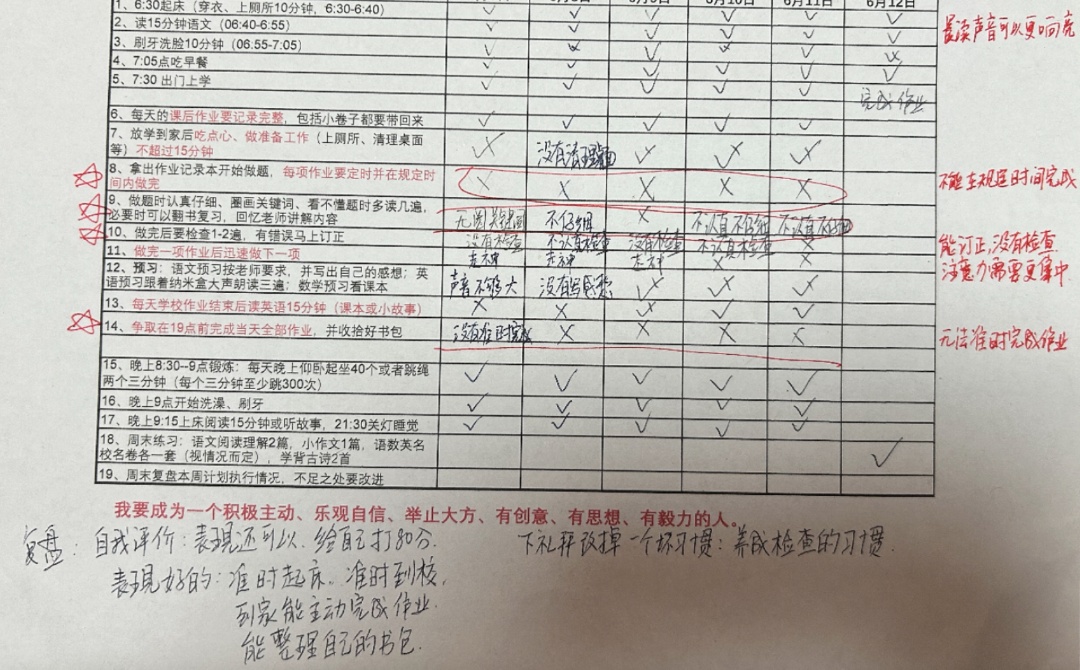 6月10日 6月11日 6月12日
1、6:30起床（穿衣、上厕所10分钟，6:30-6:40）
2、读15分钟语文（06:40-6:55）
晨读声音可以更响亮
3、刷牙洗脸10分钟（06:55-7:05）
4、7:05点吃早餐
5、7:30 出门上学
完成作业
6、每天的课后作业要记录完整，包括小卷子都要带回来
7、放学到家后吃点心、做准备工作（上厕所、清理桌面
等）不超过15分钟
没有清理桌面
8、拿出作业记录本开始做题，每项作业要定时并在规定时
间内做完
不能在规定时间完成
9、做题时认真仔细、圈画关键词、看不懂题时多读几遍，
必要时可以翻书复习，回忆老师讲解内容
不仔细 不认真不仔细 不认真不仔细
10、做完后要检查1-2遍，有错误马上订正
没有检查 不认真检查 没有检查 不认真检查
能订正，没有检查
11、做完一项作业后迅速做下一项
走神 走神 走神
注意力需要更集中
12、预习：语文预习按老师要求，并写出自己的感想；英
语预习跟着纳米盒大声朗读三遍；数学预习看课本
声音不够大 没有写感想
13、每天学校作业结束后读英语15分钟（课本或小故事）
14、争取在19点前完成当天全部作业，并收拾好书包
没有准时完成
无法准时完成作业
15、晚上8:30--9点锻炼：每天晚上仰卧起坐40个或者跳绳
两个三分钟（每个三分钟至少跳300次）
16、晚上9点开始洗澡、刷牙
17、晚上9:15上床阅读15分钟或听故事，21:30关灯睡觉
18、周末练习：语文阅读理解2篇，小作文1篇，语数英名
校名卷各一套（视情况而定），学背古诗2首
19、周末复盘本周计划执行情况，不足之处要改进
我要成为一个积极主动、乐观自信、举止大方、有创意、有思想、有毅力的人。
复盘：自我评价：表现还可以，给自己打80分. 下礼拜改掉一个坏习惯：养成检查的习惯.
表现好的：准时起床、准时到校，
到家能主动完成作业.
能整理自己的书包.